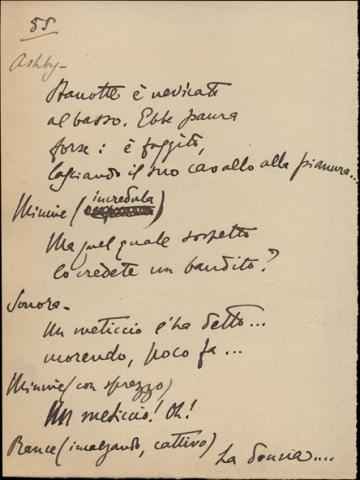 55
Ashby-
Stanotte è nevicato
al basso. Ebbe paura
forse: è fuggito,
lasciando il suo cavallo alla pianura...
Minnie (incredula)
Ma quel quale sospetto
lo credete un bandito?
Sonora-
Un meticcio l'ha detto...
morendo, poco fa...
Minnie (con sprezzo)
Un meticcio! Oh!
Rance (incalzando, cattivo)
La donna....